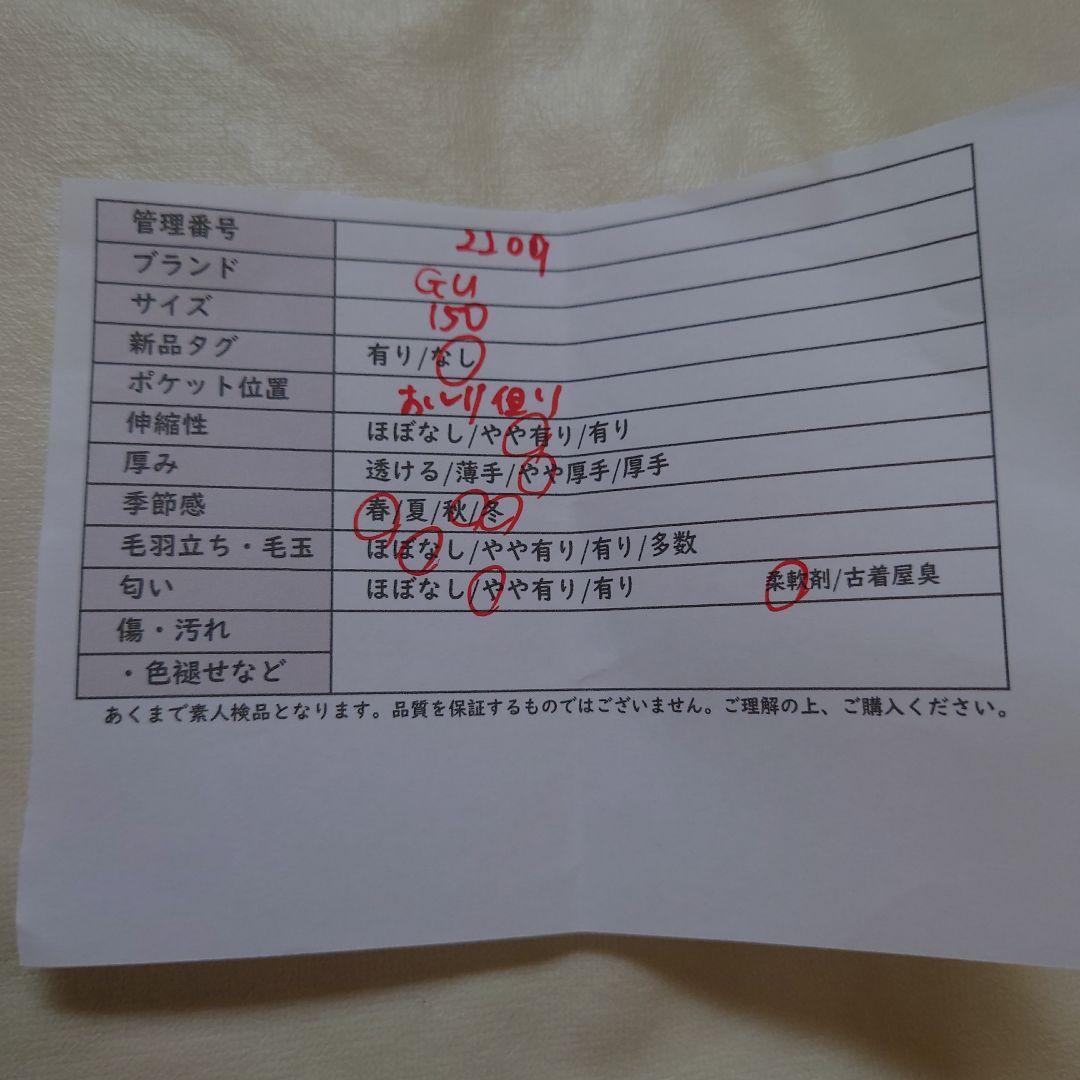 管理番号 2209
ブランド GU
サイズ 150
新品タグ 有り/なし
ポケット位置 おしり
伸縮性 ほぼなし/やや有り/有り
厚み 透ける/薄手/やや厚手/厚手
季節感 春/夏/秋/冬
毛羽立ち・毛玉 ほぼなし/やや有り/有り/多数
匂い ほぼなし/やや有り/有り 柔軟剤/古着屋臭
傷・汚れ
・色褪せなど
あくまで素人検品となります。品質を保証するものではございません。ご理解の上、ご購入ください。